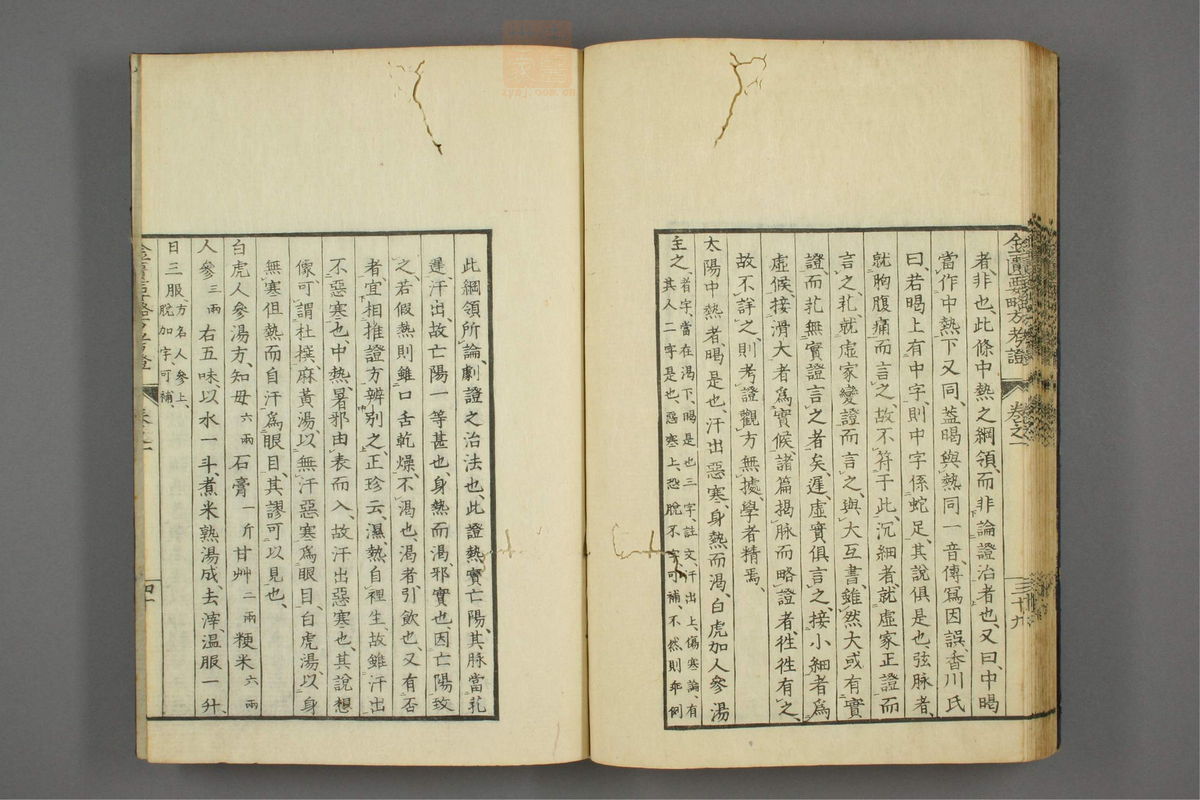 金匱要略方考證 卷之 三十九
者非也、此條中熱之綱領、而非論證治者也、又曰、中暍
當作中熱、下又同、蓋暍與熱同一音、傳寫因誤、香川氏
曰若暍上有中字、則中字係蛇足、其說俱是也、弦脉者、
就胸腹痛而言之、故不符于此、沉細者、就虛家正證而
言之、芤、就虛家變證而言之、與大互書、雖然大或有實
證而芤無實證言之者矣、遲、虛實俱言之、接小細者爲
虛候、接滑大者爲實候、諸篇揭脉而略證者、徃徃有之、
故不詳之、則考證觀方無據、學者精焉、
太陽中熱者、暍是也、汗出惡寒、身熱而渴、白虎加人參湯
主之、者字、當在渴下、暍是也三字、註文、汗出上、傷寒論、有
其人二字是也、惡寒上、恐脫不字、可補、不然則非例
此綱領所論、劇證之治法也、此證熱實亡陽、其脉當芤
遲、汗出、故亡陽一等甚也、身熱而渴、邪實也、因亡陽致
之、若假熱則雖口舌乾燥、不渴也、渴者引飮也、又有否
者、宜相推證方辨別之、正珍云、濕熱自裡生、故雖汗出
不惡寒也、中熱、暑邪由表而入、故汗出惡寒也、其說想
像可謂杜撰、麻黃湯以無汗惡寒爲眼目、白虎湯、以身
無寒但熱而自汗爲眼目、其謬可以見也、
白虎人參湯方、知母六兩石膏一斤甘艸二兩粳米六兩
人參三兩右五味、以水一斗、煮米熟湯成、去滓溫服一升、
日三服、方名人參上、
脫加字、可補、
四十